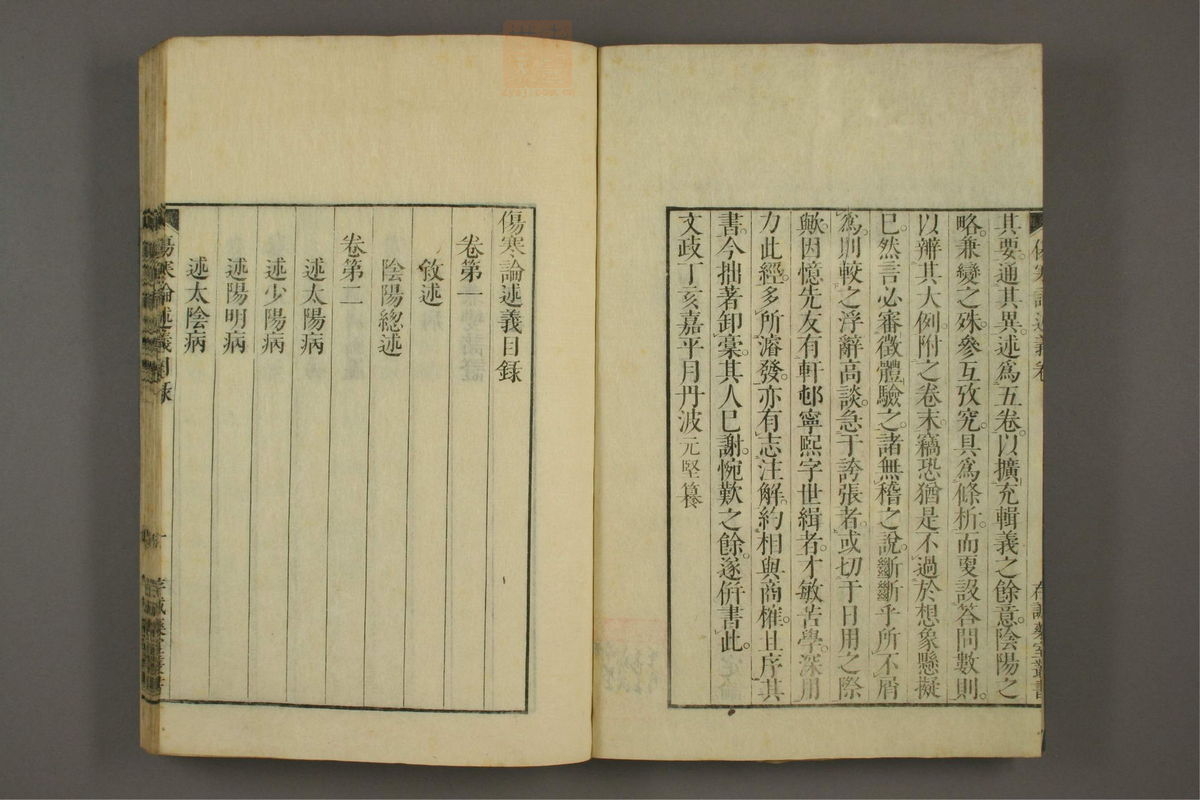 其要。通其異。述爲五卷。以擴充輯義之餘意。陰陽之
略。兼變之殊。參互攷究。具爲條析。而更設答問數則。
以辨其大例。附之卷末。竊恐猶是不過於想象懸擬
已。然言必審徵。體驗之。諸無稽之說。斷斷乎所不屑
爲。則較之浮辭高談。急于誇張者。或切于日用之際
歟。因憶先友有軒邨寧熙字世緝者。才敏苦學。深用
力此經。多所濬發。亦有志注解。約相與商榷。且序其
書。今拙著卸稾。其人已謝。惋歎之餘。遂倂書此。
文政丁亥嘉平月丹波元堅纂
傷寒論述義目錄
卷第一
攷述
陰陽總述
卷第二
述太陽病
述少陽病
述陽明病
述太陰病
傷寒論述義目錄
一
存誠藥室叢書